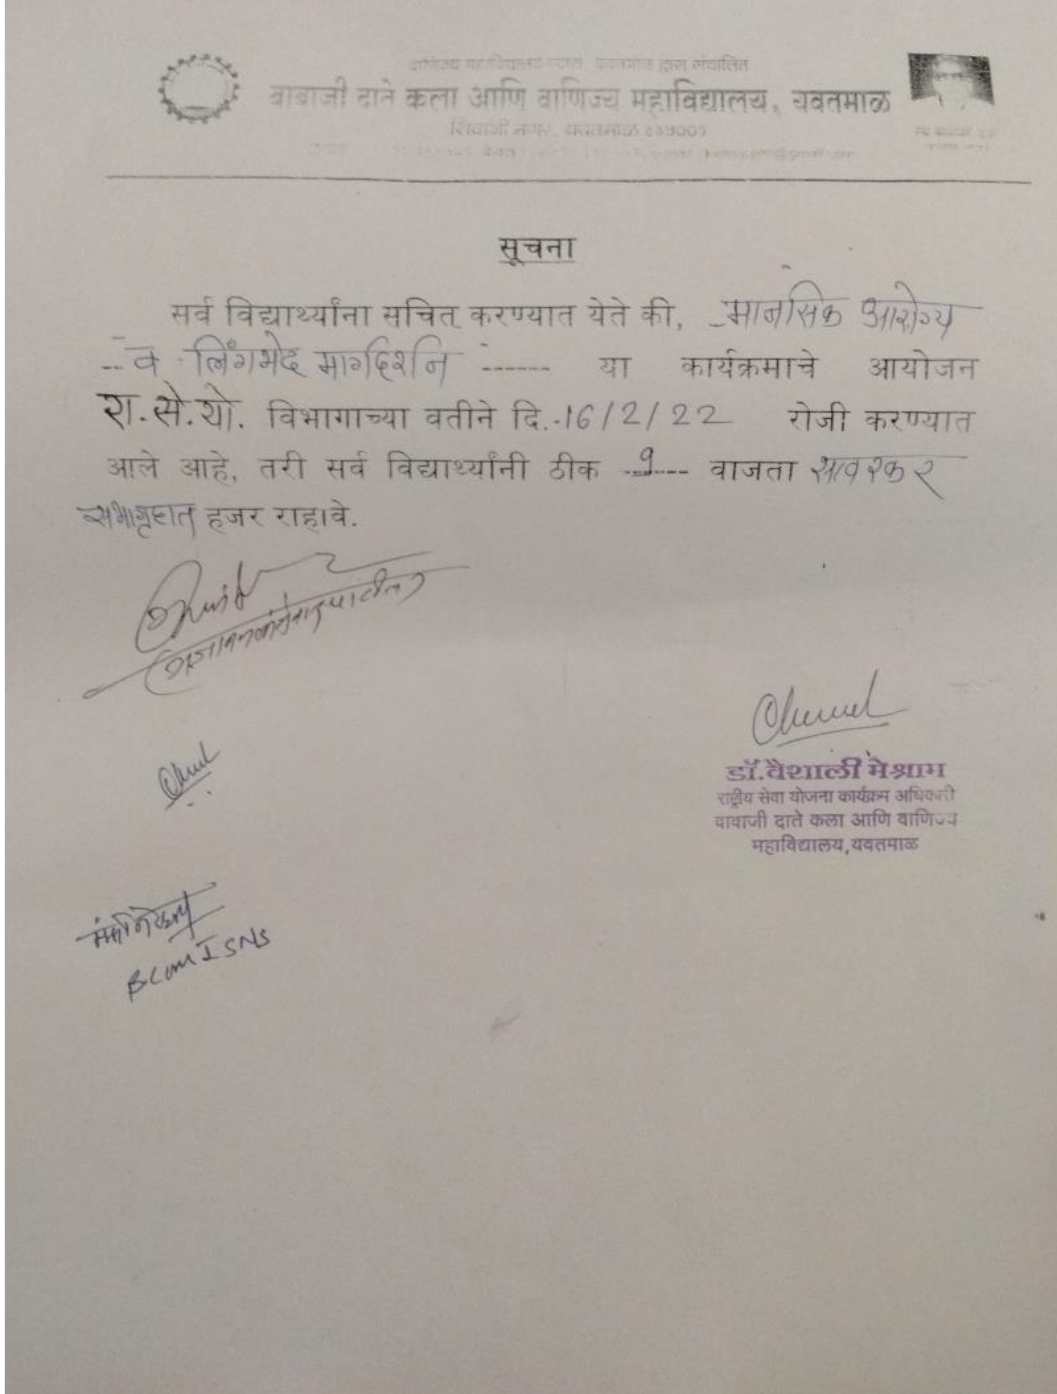 वाणिज्य महाविद्यालय न्यास, यवतमाळ द्वारा संचालित
बाबाजी दाते कला आणि वाणिज्य महाविद्यालय, यवतमाळ
शिवाजी नगर, यवतमाळ
सूचना
सर्व विद्यार्थ्यांना सचित करण्यात येते की, मानसिक आरोग्य
व लिंगभेद मार्गदर्शन ------ या कार्यक्रमाचे आयोजन
रा.से.यो. विभागाच्या वतीने दि.-16/2/22 रोजी करण्यात
आले आहे, तरी सर्व विद्यार्थ्यांनी ठीक ---- वाजता सावरकर
सभागृहात हजर राहावे.
डॉ.वैशाली मेश्राम
राष्ट्रीय सेवा योजना कार्यक्रम अधिकारी
बाबाजी दाते कला आणि वाणिज्य
महाविद्यालय,यवतमाळ
BCOM I SNS